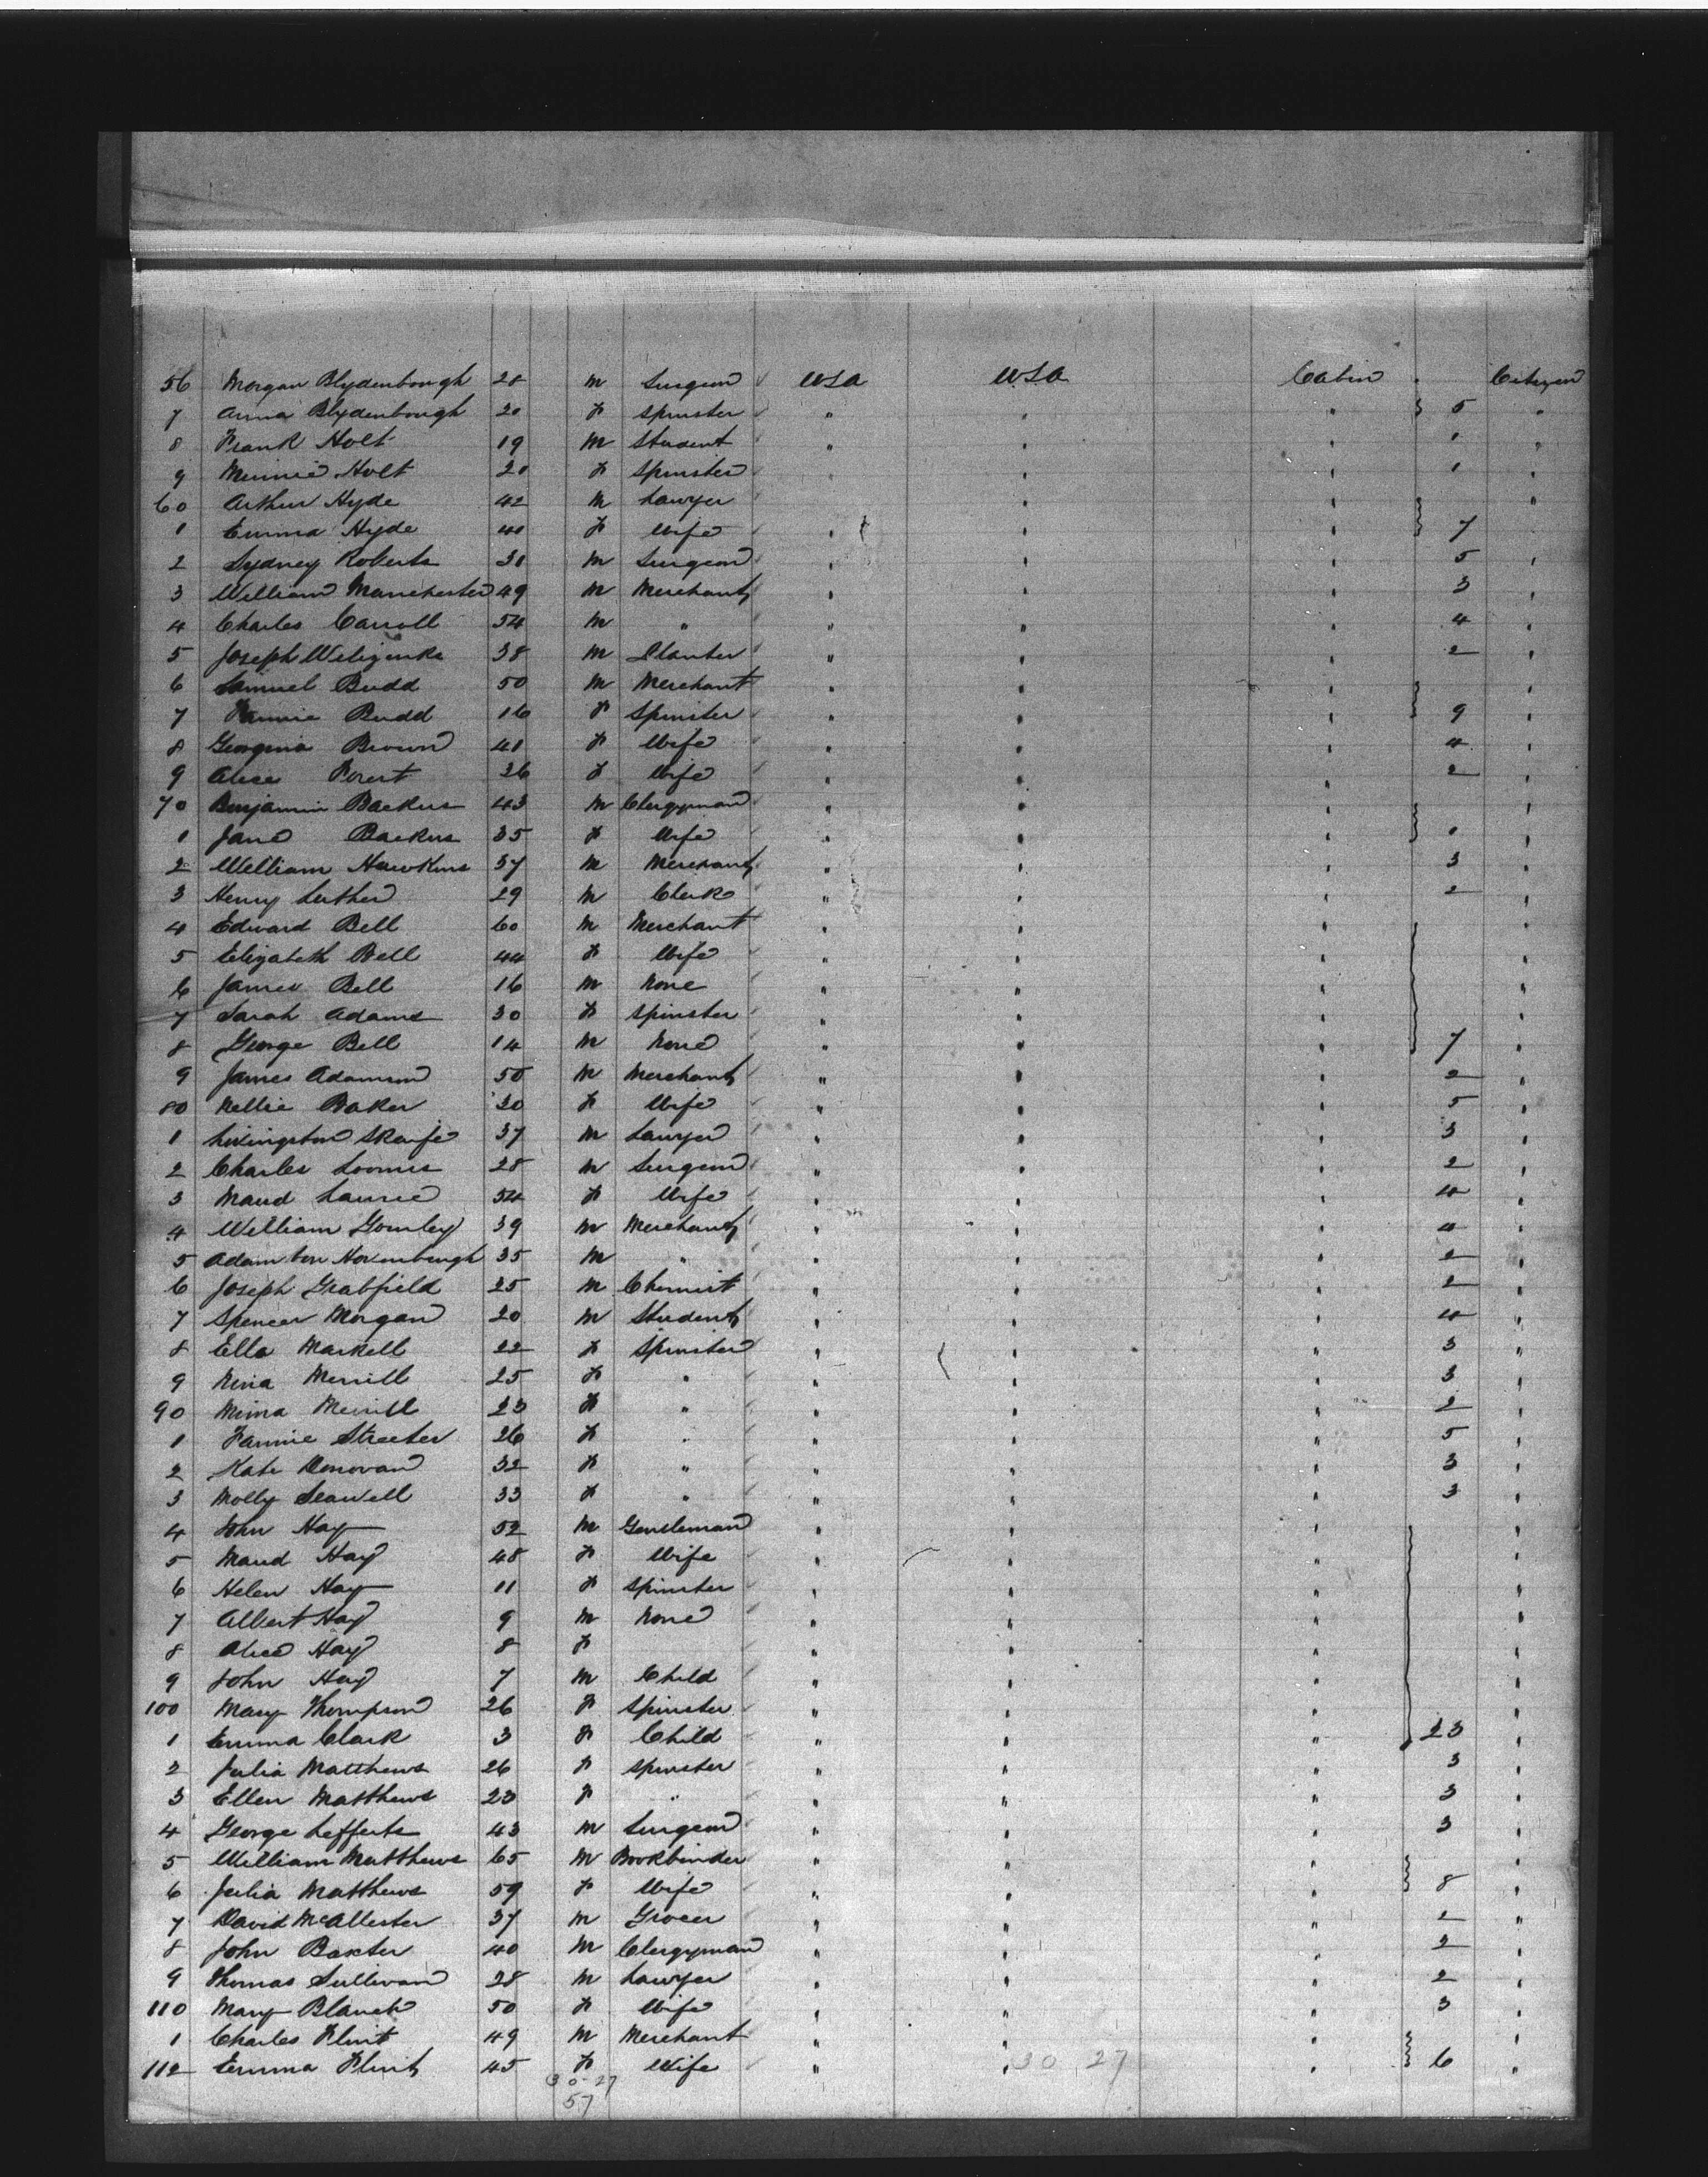 56 Morgan Blydenbough 28 M Surgeon USA USA Cabin Citizen
7 Anna Blydenbough 20 F Spinster " " " 5 "
8 Frank Holt 19 M Student " " " 1 "
9 Minnie Holt 20 F Spinster " " " 1
60 Arthur Hyde 42 M Lawyer " " " "
1 Emma Hyde 40 F Wife " " " 7
2 Sydney Roberts 30 M Surgeon " " " 5 "
3 William Manchester 49 M Merchant " " " 3 "
4 Charles Carroll 54 M " " " " 4 "
5 Joseph 38 M Planter " " " 2 "
6 Samuel Budd 50 M Merchant " " " "
7 Fannie Budd 16 F Spinster " " " 9 "
8 Georgina Brown 40 F Wife " " " 4 "
9 Alice 36 F Wife " " " 2 "
70 Benjamin Backus 43 M Clergyman " " " "
1 Jane Backus 35 F Wife " " " 1 "
2 William Hawkins 37 M Merchant " " " 3 "
3 Henry Luther 29 M Clerk " " " 2 "
4 Edward Bell 60 M Merchant " " " "
5 Elizabeth Bell 44 F Wife " " " "
6 James Bell 16 M None " " " "
7 Sarah Adams 30 F Spinster " " " "
8 George Bell 14 M None " " " 7 "
9 James Adamson 50 M Merchant " " " 2 "
80 Nellie Baker 30 F Wife " " " 5 "
1 Livingston 37 M Lawyer " " " 3 "
2 Charles Loomis 28 M Surgeon " " " 2 "
3 Maud Laurie 54 F Wife " " " 4 "
4 William Gourley 39 M Merchant " " " 4 "
5 Adam 35 M " " " " 2 "
6 Joseph Grabfield 25 M Chemist " " " 2 "
7 Spencer Morgan 20 M Student " " " 4 "
8 Ella Markell 22 F Spinster " " " 3 "
9 Nina Merrill 25 F " " " " 3 "
90 Mima Merrill 23 F " " " " 2 "
1 Fannie Streeter 26 F " " " " 5 "
2 Kate Donovan 32 F " " " " 3 "
3 Molly Seawell 33 F " " " " 3 "
4 John Hay 52 M Gentleman " " " "
5 Maud Hay 48 F Wife " " " "
6 Helen Hay 11 F Spinster " " " "
7 Albert Hay 9 M None " " " "
8 Alice Hay 8 F " " " "
9 John Hay 7 M Child " " " "
100 Mary Thompson 26 F Spinster " " " "
1 Emma Clark 3 F Child " " " 23 "
2 Julia Matthews 26 F Spinster " " " 3 "
3 Ellen Matthews 23 F " " " " 3 "
4 George Lefferts 43 M Surgeon " " " 3 "
5 William Matthews 65 M Bookbinder " " " "
6 Julia Matthews 59 F Wife " " " 8 "
7 David McAllester 37 M Grocer " " " 2 "
8 John Baxter 40 M Clergyman " " " 2 "
9 Thomas Sullivan 28 M Lawyer " " " 2 "
110 Mary 50 F Wife " " " 3 "
1 Charles Flint 49 M Merchant " " " "
112 Emma Flint 45 F Wife " " " 6 "
30 27
30-27
57